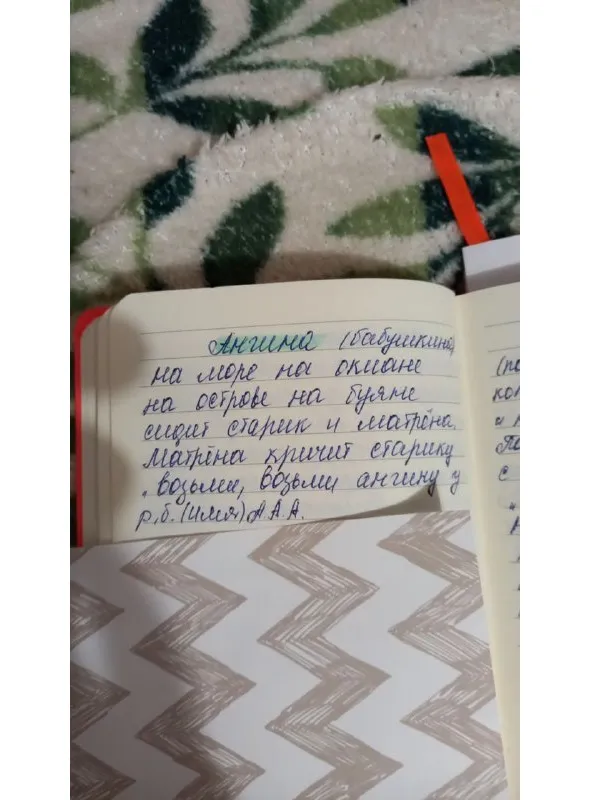 Ангина (бабушкина)
на море на окиане
на острове на буяне
сидит старик и матрёна.
Матрёна кричит старику
"возьми, возьми ангину у
р.б. (имя) А А.А.
(по
и
с